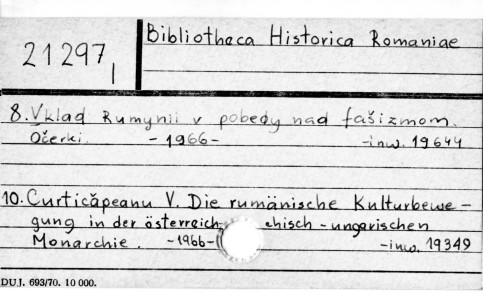 Bibliotheca Historica Romaniae
21297,
I
8. Vklad Rumynii v pobedy nad fašizmom.
Očerki. - 1966 - -inw. 19644
10. Curticăpeanu V. Die rumänische Kulturbewe-
gung in der österreich- hisch-ungarischen
Monarchie. - 1966 - -inw. 19349
DUJ. 693/70. 10 000.